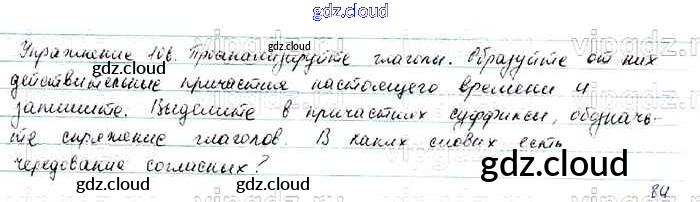 gdz.cloud
Упражнение 106. Проанализируйте глаголы. Образуйте от них
gdz.cloud
действительные причастия настоящего времени и
gdz.cloud gdz.cloud
запишите. Выделите в причастиях суффиксы, обозначь-
те спряжение глаголов. В каких словах есть
gdz.cloud
чередование согласных?
gdz.cloud gdz.cloud
84